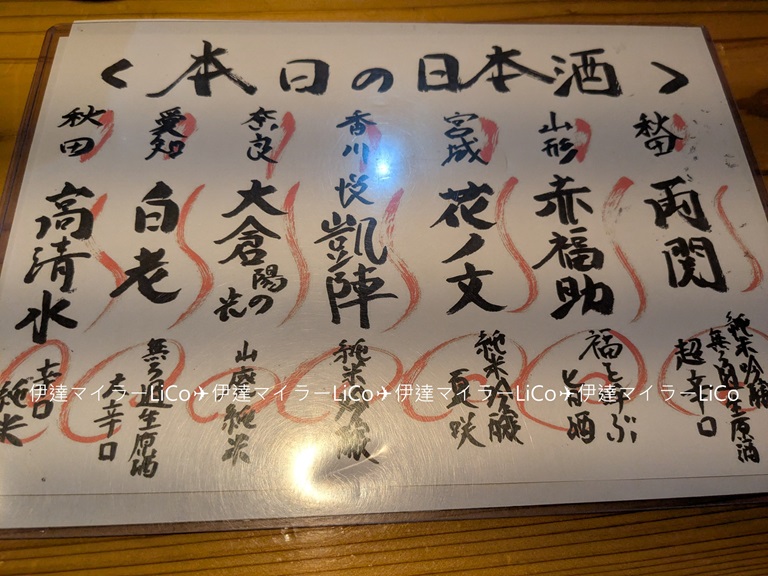 <本日の日本酒>
秋田
両関
純米吟醸
無ろ過生原酒
超辛口
山形
赤福助
福を呼ぶ
酒
宮城
花ノ文
純米吟醸
夏咲
香川
悦凱陣
純米吟醸
奈良
大倉
陽の光
山廃純米
愛知
白老
無ろ過生原酒
大辛口
秋田
高清水
辛口
純米
伊達マイラーLiCo✈伊達マイラーLiCo✈伊達マイラーLiCo✈伊達マイラーLiCo